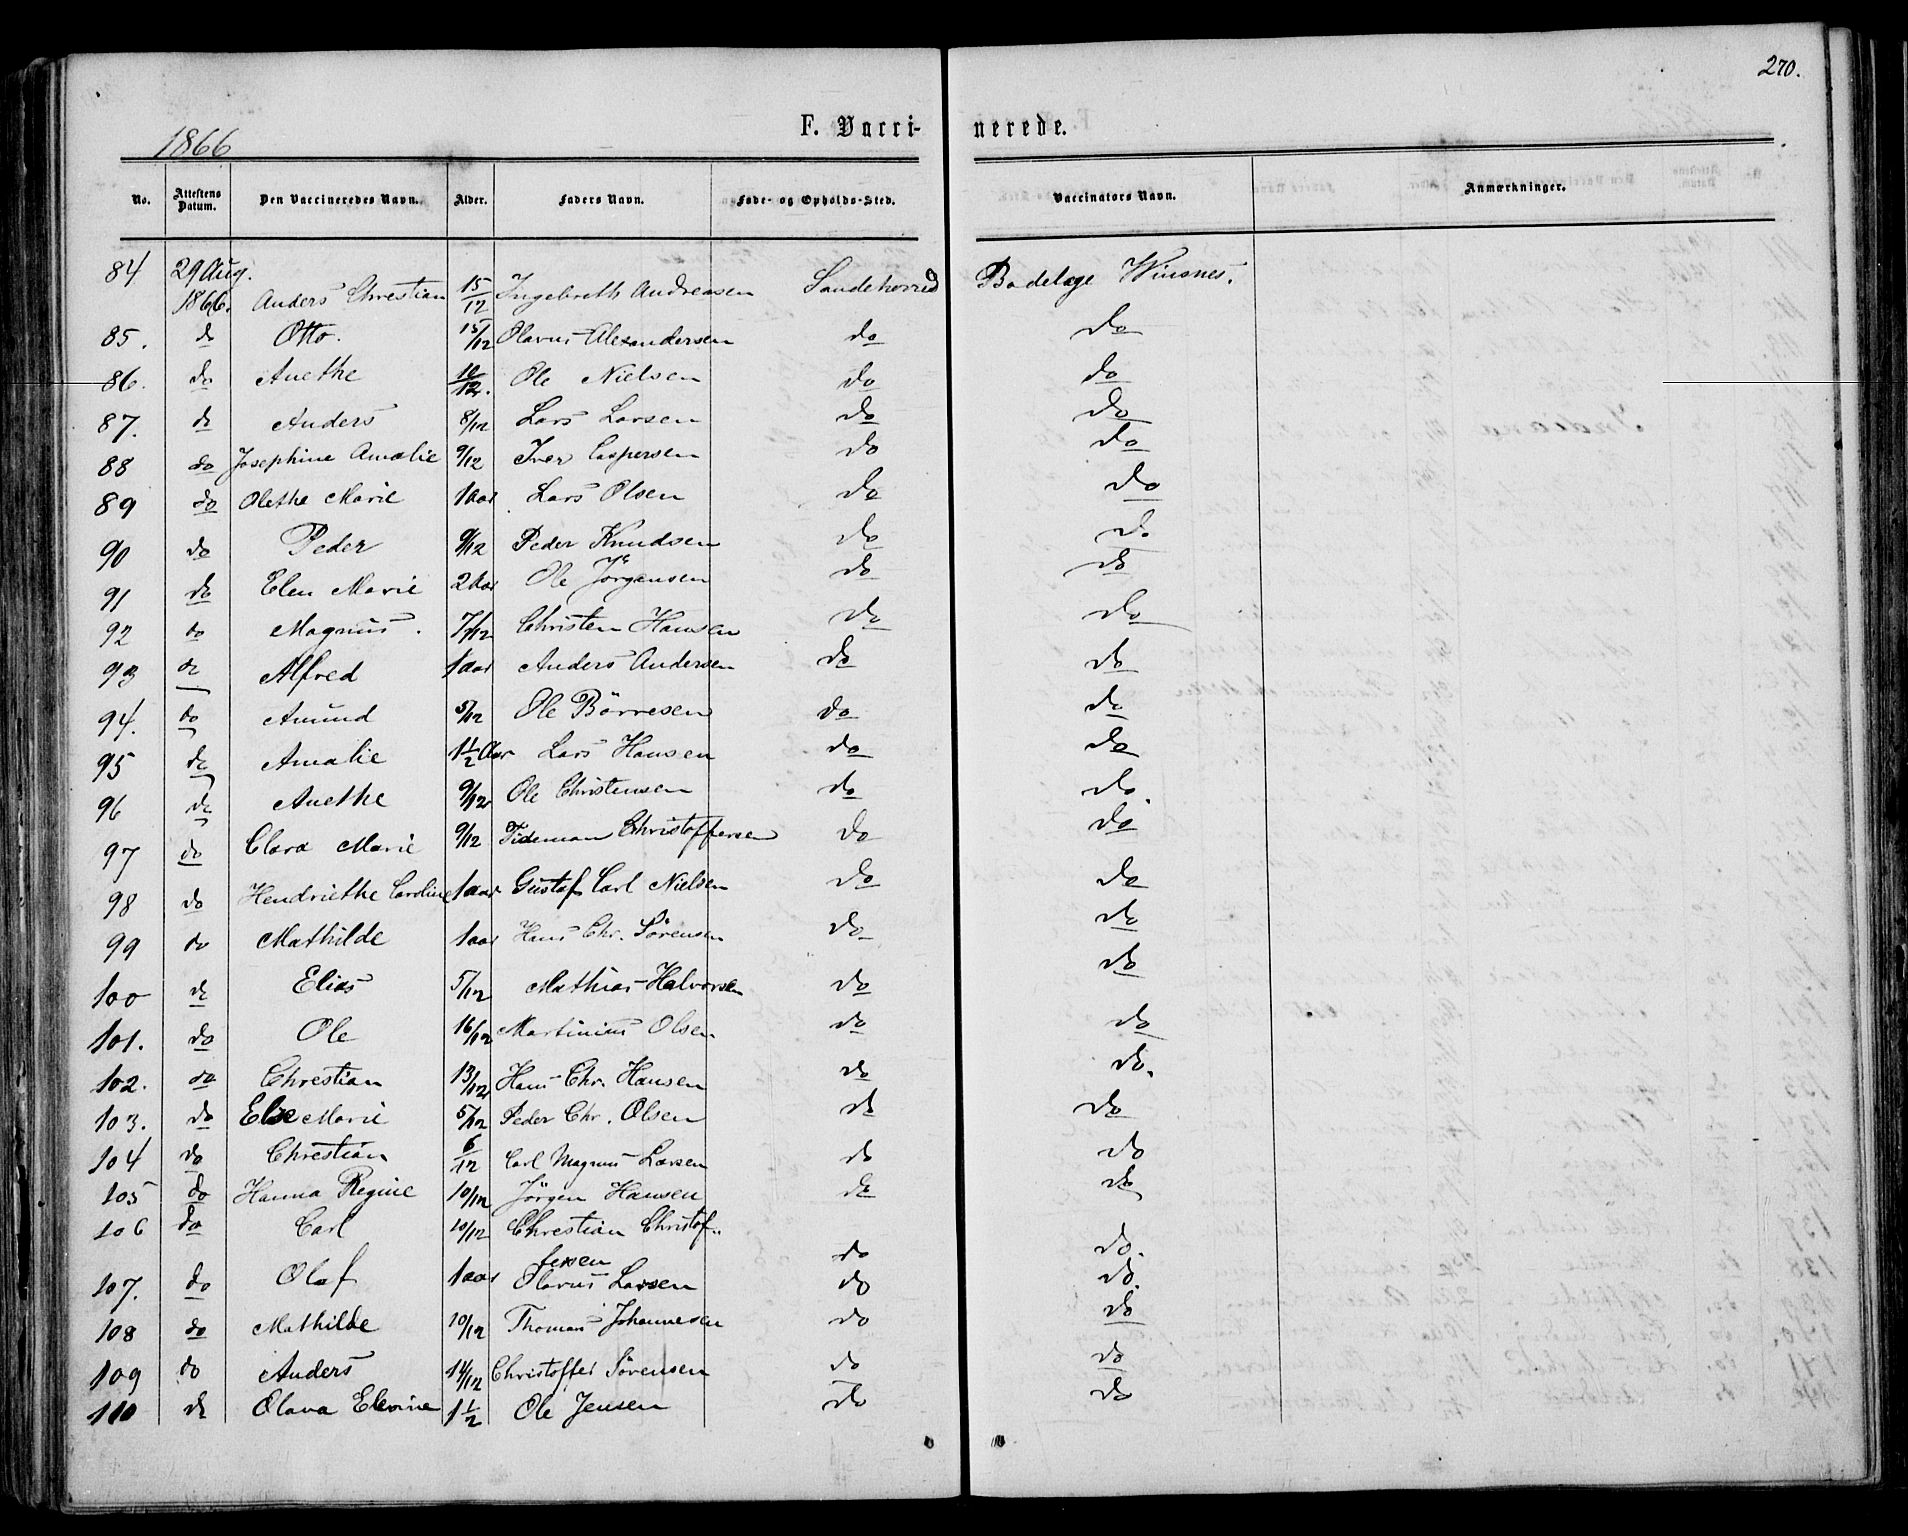 270.
1866 F. Vacci- nerede.
No. Attestens Datum. Den Vaccineredes Navn. Alder. Faders Navn. Føde- og Opholds-Sted. Vaccinators Navn. Anmærkninger.
84 29 Aug. 1866. Anders Chrestian 15/12 Ingebreth Andreasen Sandeherred Badelæge Winsnes.
85. do Otto. 15/12 Olavus Alexandersen do do
86. do Anethe 10/12. Ole Nielsen do do
87. do Anders 8/12 Lars Larsen do do
88 do Josephine Amalie 9/12 Iver Caspersen do do
89 do Olethe Marie 1 aar Lars Olsen do do
90 do Peder 9/12 Peder Knudsen do do
91 do Elen Marie 2 Aar Ole Jörgensen do do
92 do Magnus. 7/12 Christen Hansen do do
93 do Alfred 1 aar Anders Andersen do do
94. do Amund 5/12 Ole Börresen do do
95 do Amalie 1 1/2 Aar Lars Hansen do do
96 do Anethe 9/12 Ole Christensen do do.
97 do Clara Marie 9/12 Tideman Christoffersen do do
98 do Hendriethe Caroline 1 aar Gustaf Carl Nielsen do do
99 do Mathilde 1 aar Hans Chr. Sörensen do do
100 do Elias 5/12 Mathias Halvorsen do do
101. do Ole 16/12 Martinius Olsen do do
102. do Chrestian 13/12 Hans Chr. Hansen do do.
103. do Else Marie 5/12 Peder Chr. Olsen do do
104 do Chrestian 6/12 Carl Magnus Larsen do do
105 do Hanna Regine 10/12 Jörgen Hansen do do
106 do Carl 10/12 Chrestian Christof-
fersen do do.
107. do Olaf 1 aar Olavus Larsen do do.
108 do Mathilde 10/12 Thomas Johannesen do do
109 do Anders 14/12 Christoffer Sörensen do do
110 do Olava Elevine 1 1/2 Ole Jensen do do